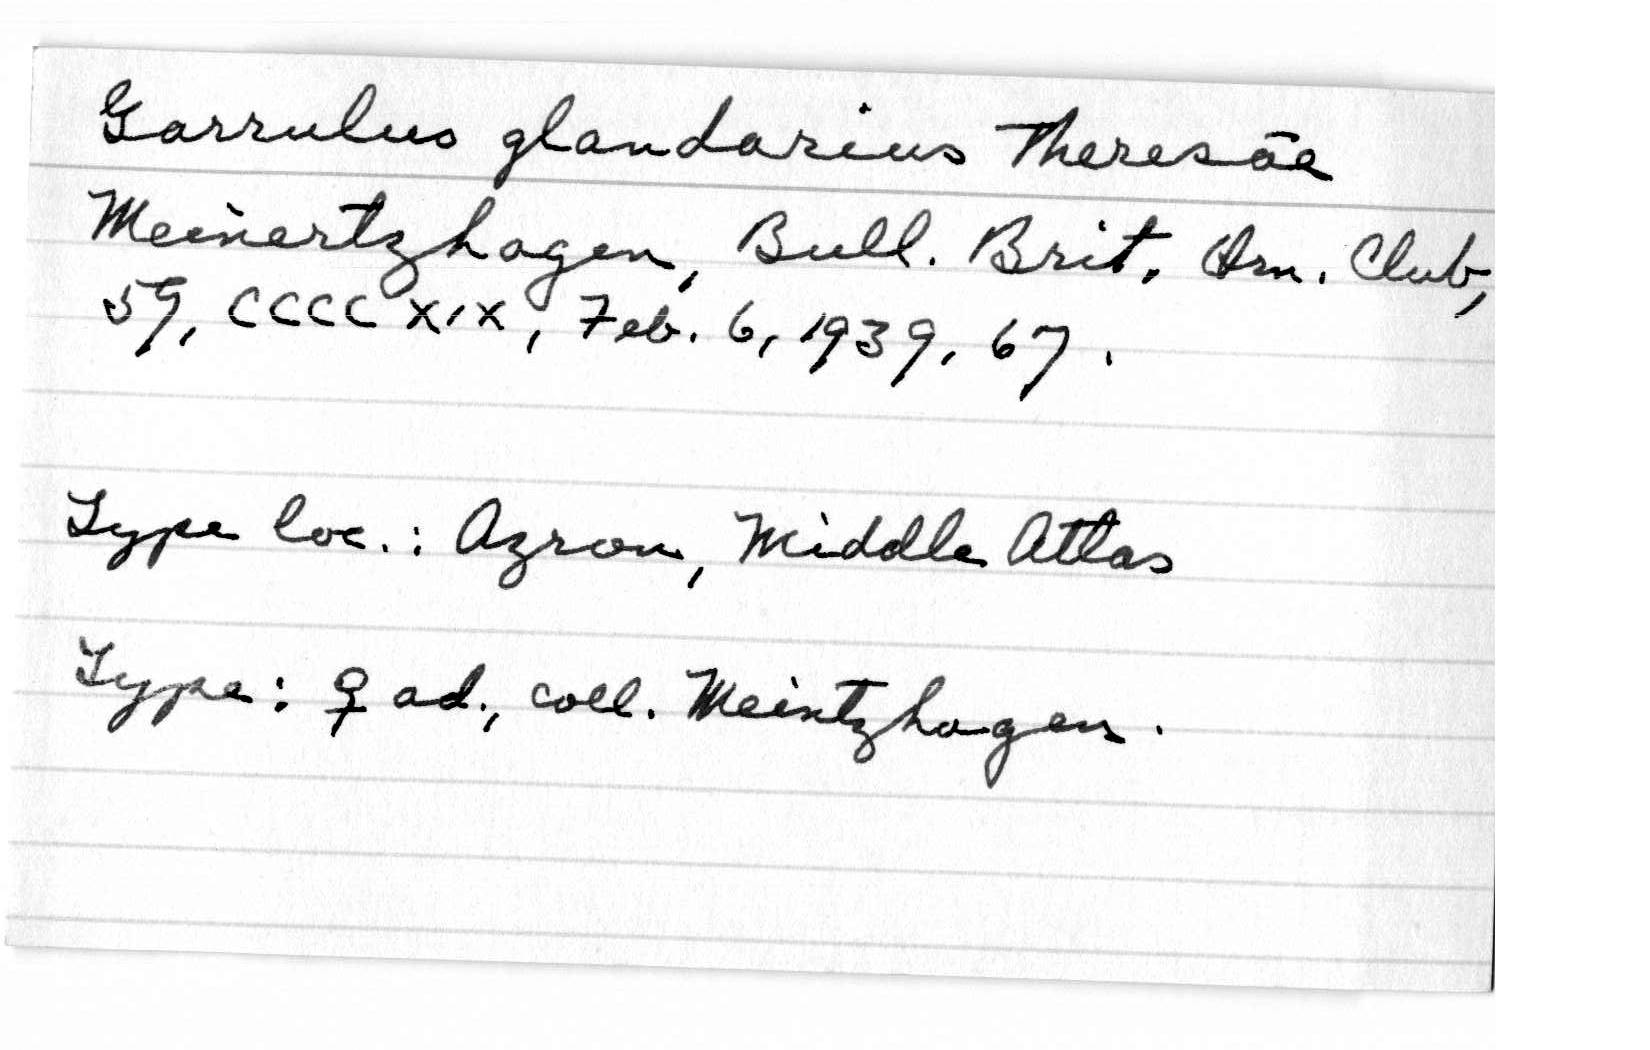 Garrulus glandarius Theresāe
Meinertzhagen, Bull. Brit. Orn. Club,
59, CCCCXIX, Feb. 6, 1939, 67.
Type loc.: Azrou, Middle Atlas
Type: ♀ ad., coll. Meintzhagen.